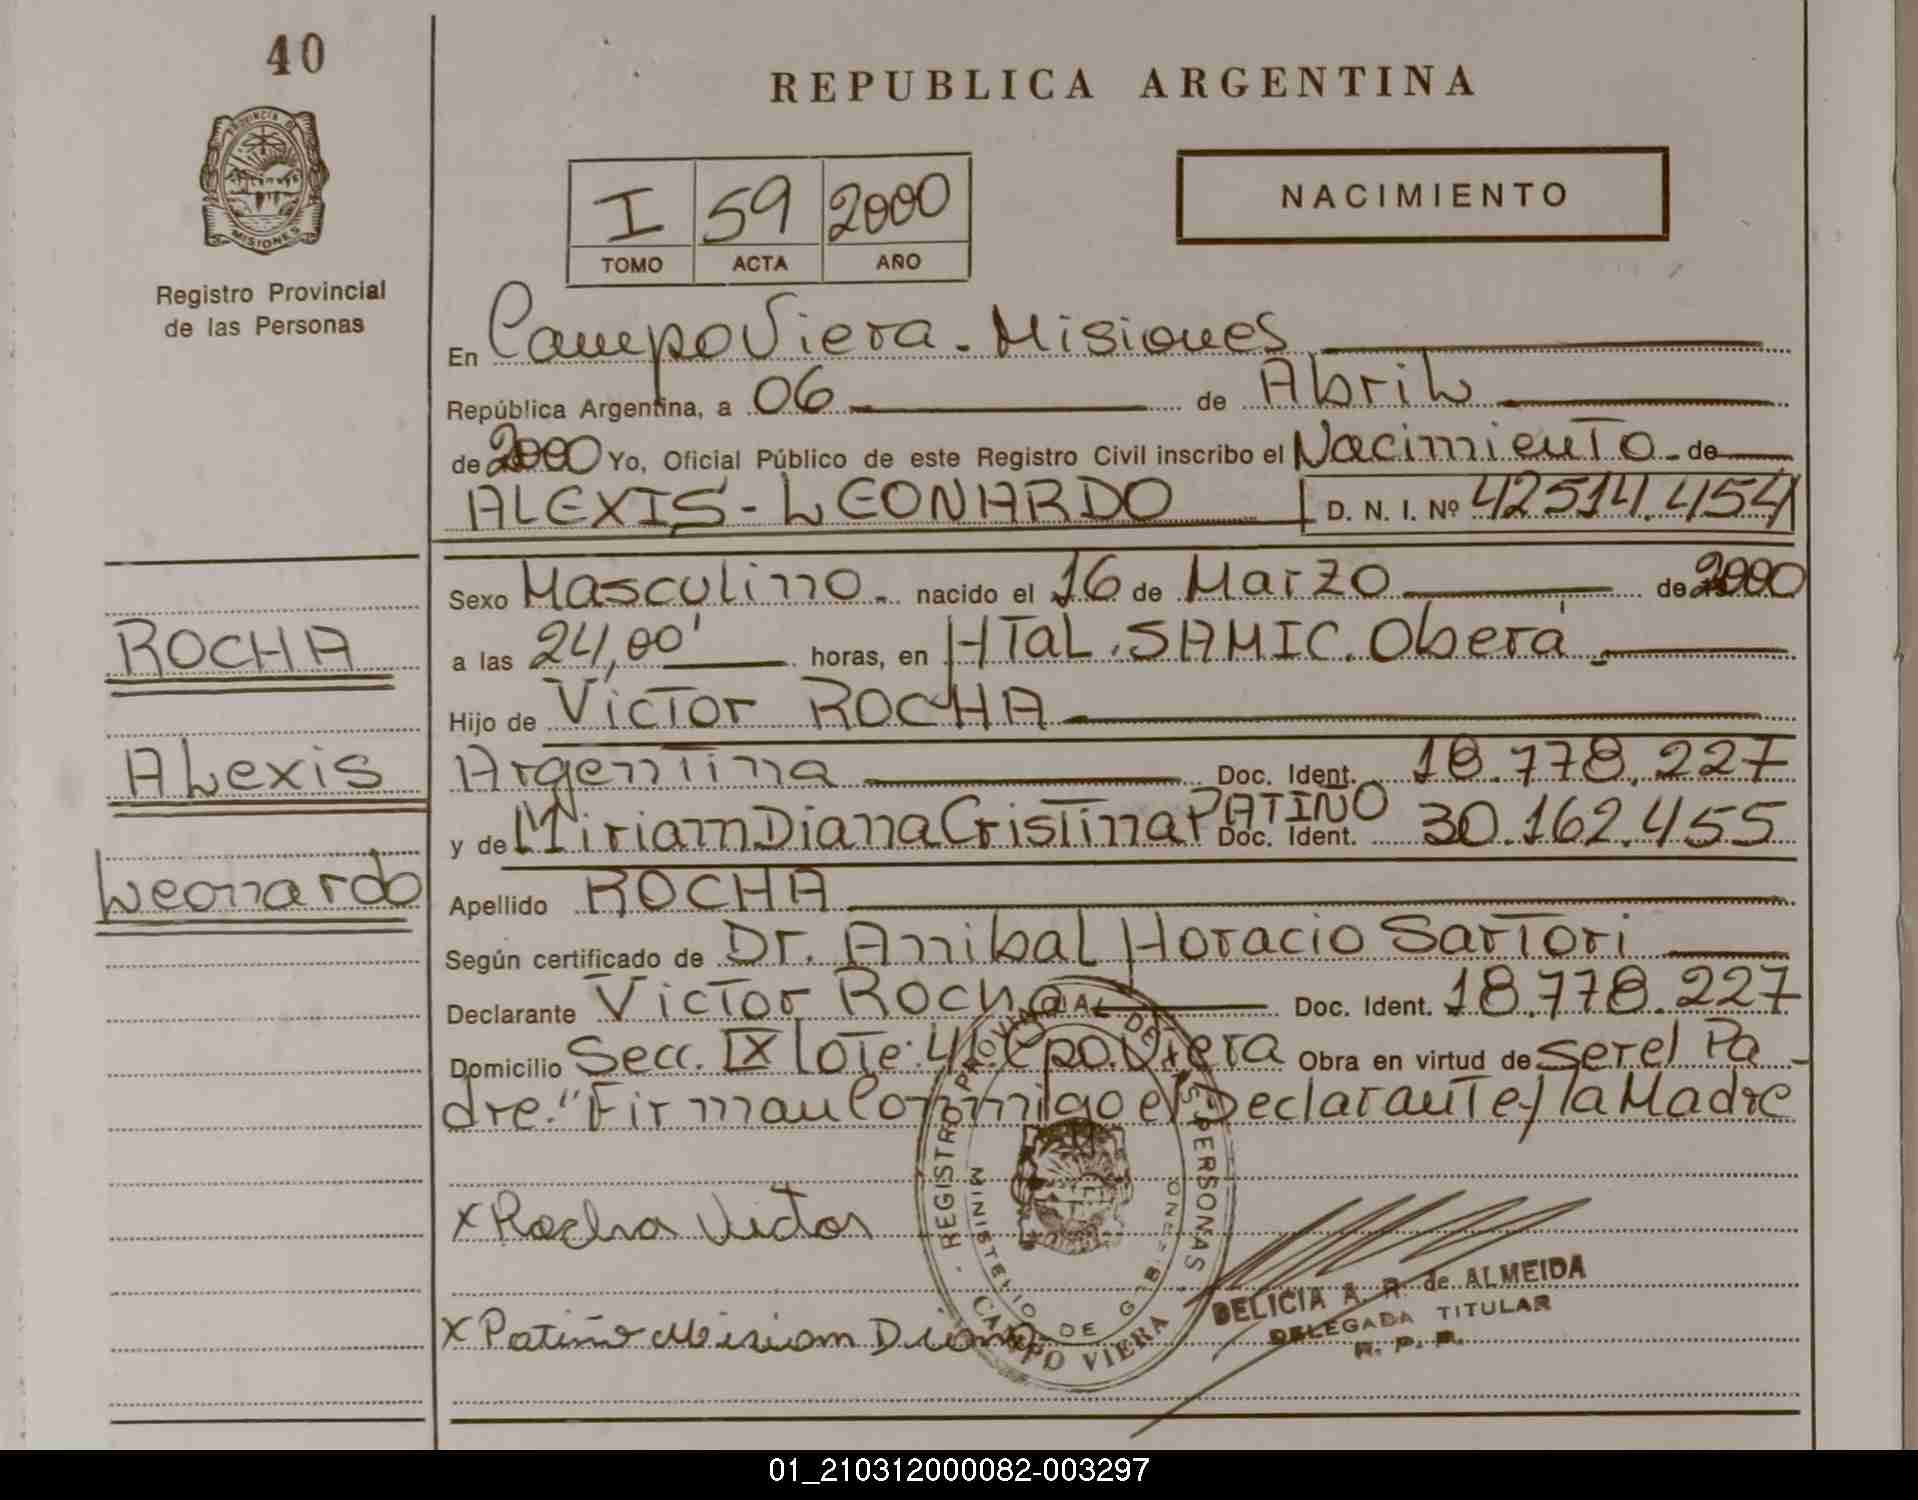 40
REPUBLICA ARGENTINA
PROVINCIA DE
MISIONES
Registro Provincial
de las Personas
I 59 2000
TOMO ACTA AÑO
NACIMIENTO
En Campo Viera - Misiones
República Argentina, a 06 de Abril
de 2000 Yo, Oficial Público de este Registro Civil inscribo el Nacimiento de
ALEXIS - LEONARDO D. N. I. Nº 42514.454
Sexo Masculino. nacido el 16 de Marzo de 2000
a las 24,00' horas, en HTal. SAMIC. Oberá
Hijo de Victor ROCHA
Argentina Doc. Ident. 18.778.227
y de Miriam Diana Cristina PATIÑO Doc. Ident. 30.162.455
Apellido ROCHA
Según certificado de Dr. Anibal Horacio Sartori
Declarante Victor Rocha Doc. Ident. 18.778.227
Domicilio Secc. IX lote: 41. Cpo. Viera Obra en virtud de ser el Pa-
dre. "Firman Conmigo el Declarante y la Madre
ROCHA
Alexis
Leonardo
x Rocha Victor
x Patiño Miriam Diana
REGISTRO PROVINCIAL DE LAS PERSONAS
MINISTERIO DE GOB
CAMPO VIERA
DELICIA A. R. de ALMEIDA
DELEGADA TITULAR
R. P. P.
01_210312000082-003297